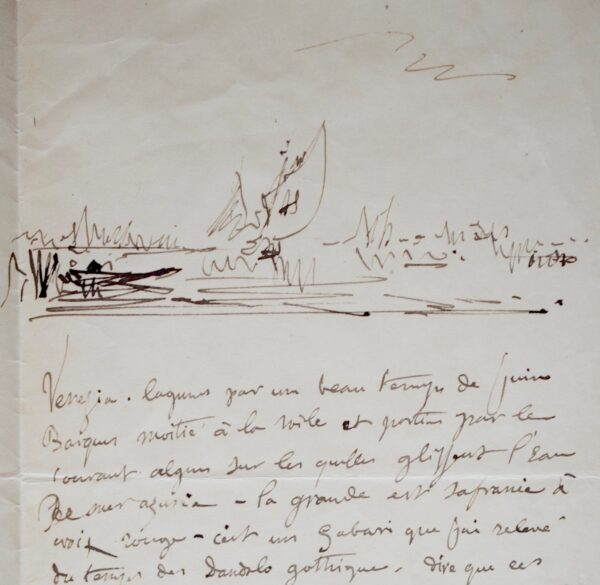 Venezia. lagunes par un beau temps de Juin
Barques moitié à la voile et portées par le
courant algues sur les quelles glissent l'Eau
De mer azuria - la grande est safranée à
croix rouge - c'est un Gabari que j'ai relevé
du temps des Dandolo gothique. Dire que ces